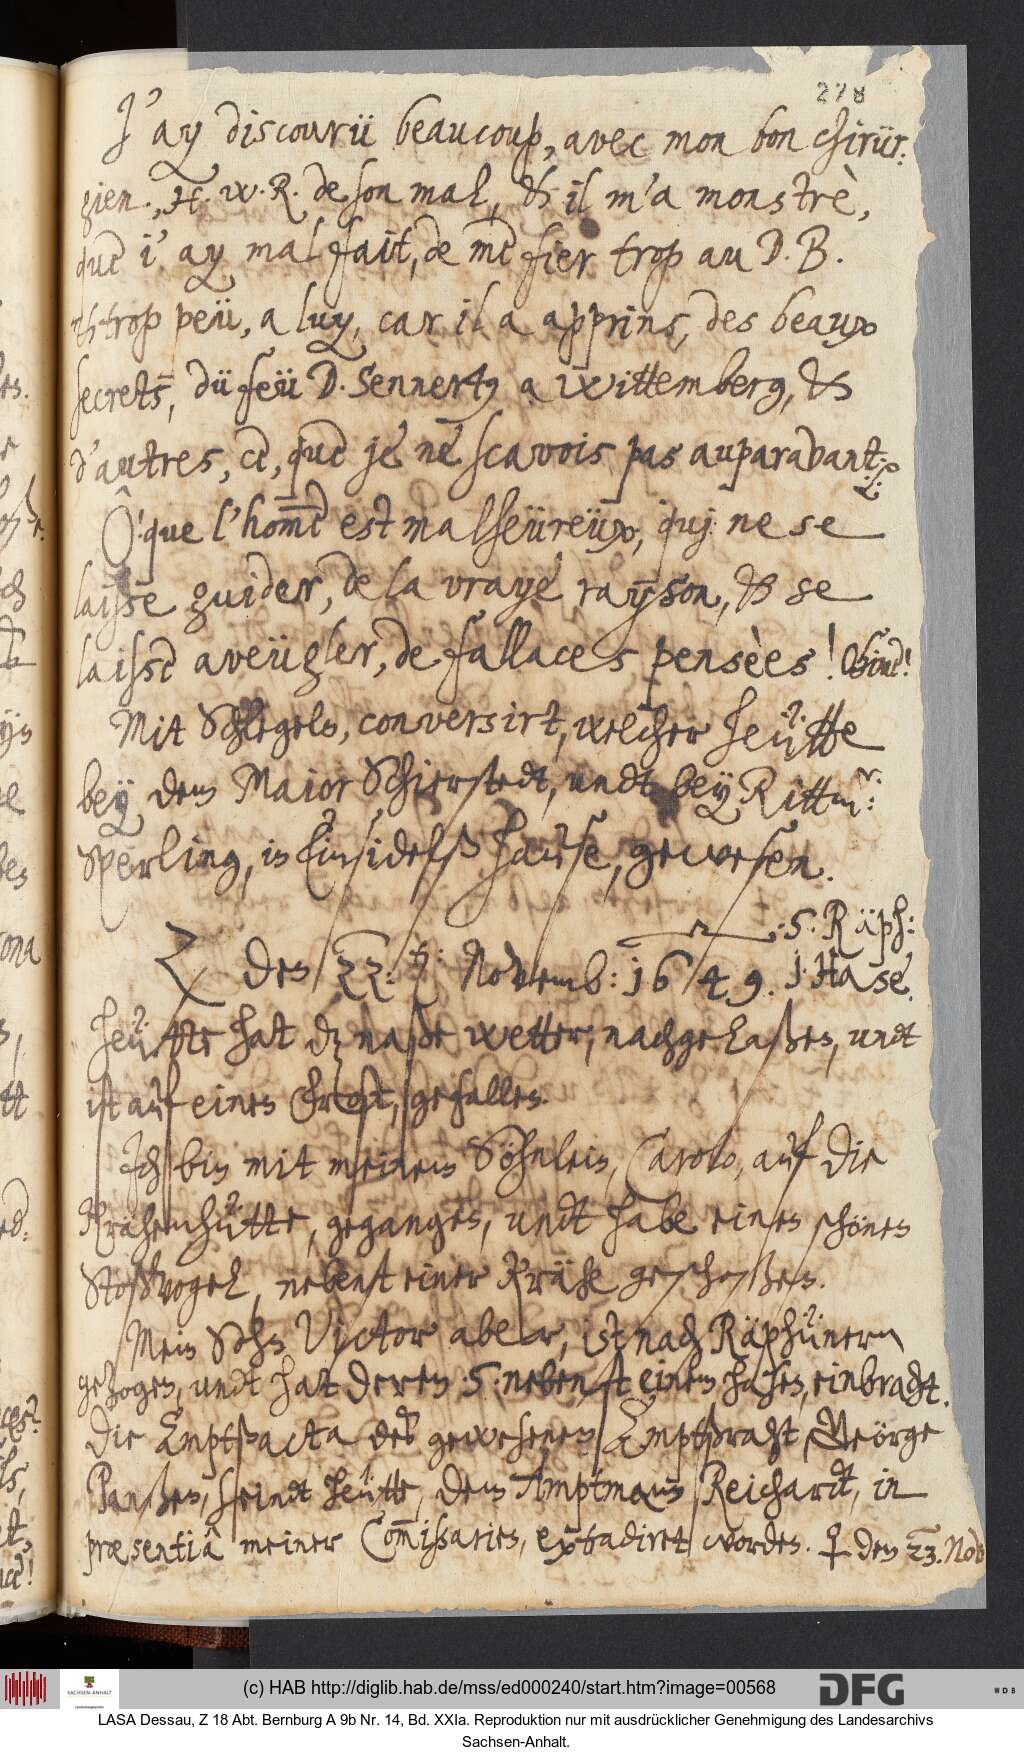 278
J'ay discouru beaucoup, avec mon bon chirur:
gien., H. W. R. de son mal, & il m'a monstrè,
que i'ay mal fait, de me fier trop au D. B.
& trop peü, a luy, car il a apprins, des beaux
secrets, dü feü D. Sennerty a Wittemberg, &
d'autres, ce, que je ne scavois pas auparavant
O! que l'home est malheüreüx, quj ne se
laysse guider, de la vraye rayson, & se
laisse aveügler, de fallaces pensèes!
Mit Schlegeln, conversirt, welcher heütte
bey dem Maior Schierstedt, undt bey Rittm:r
Sperling, in Einsidelß hause, gewesen.
den 22. Novemb: 1649. 5. Räph:
1. Hase.
Heütte hat dz naße wetter, nachgelaßen, undt
ist auf einen frost, gefallen.
Ich bin mit meinem Söhnlein, Carolo, auf die
Krähenhütte, gegangen, undt habe einen schönen
Stoßvogel, nebenst einer Krähe geschoßen.
Mein Sohn Victor aber, ist nach Räphünern
gezogen, undt hat deren 5. nebenst einem hasen, einbracht.
Die Amptßacta deß gewesenen Amptßraht, Geörge
Banßen, seindt heütte, dem Amptmann Reichardt, in
præsentiâ meiner Commissarien, extradiret worden. ♀ den 23. Nov
(c) HAB http://diglib.hab.de/mss/ed000240/start.htm?image=00568
SACHSEN-ANHALT
DFG
WDB
LASA Dessau, Z 18 Abt. Bernburg A 9b Nr. 14, Bd. XXIa. Reproduktion nur mit ausdrücklicher Genehmigung des Landesarchivs
Sachsen-Anhalt.